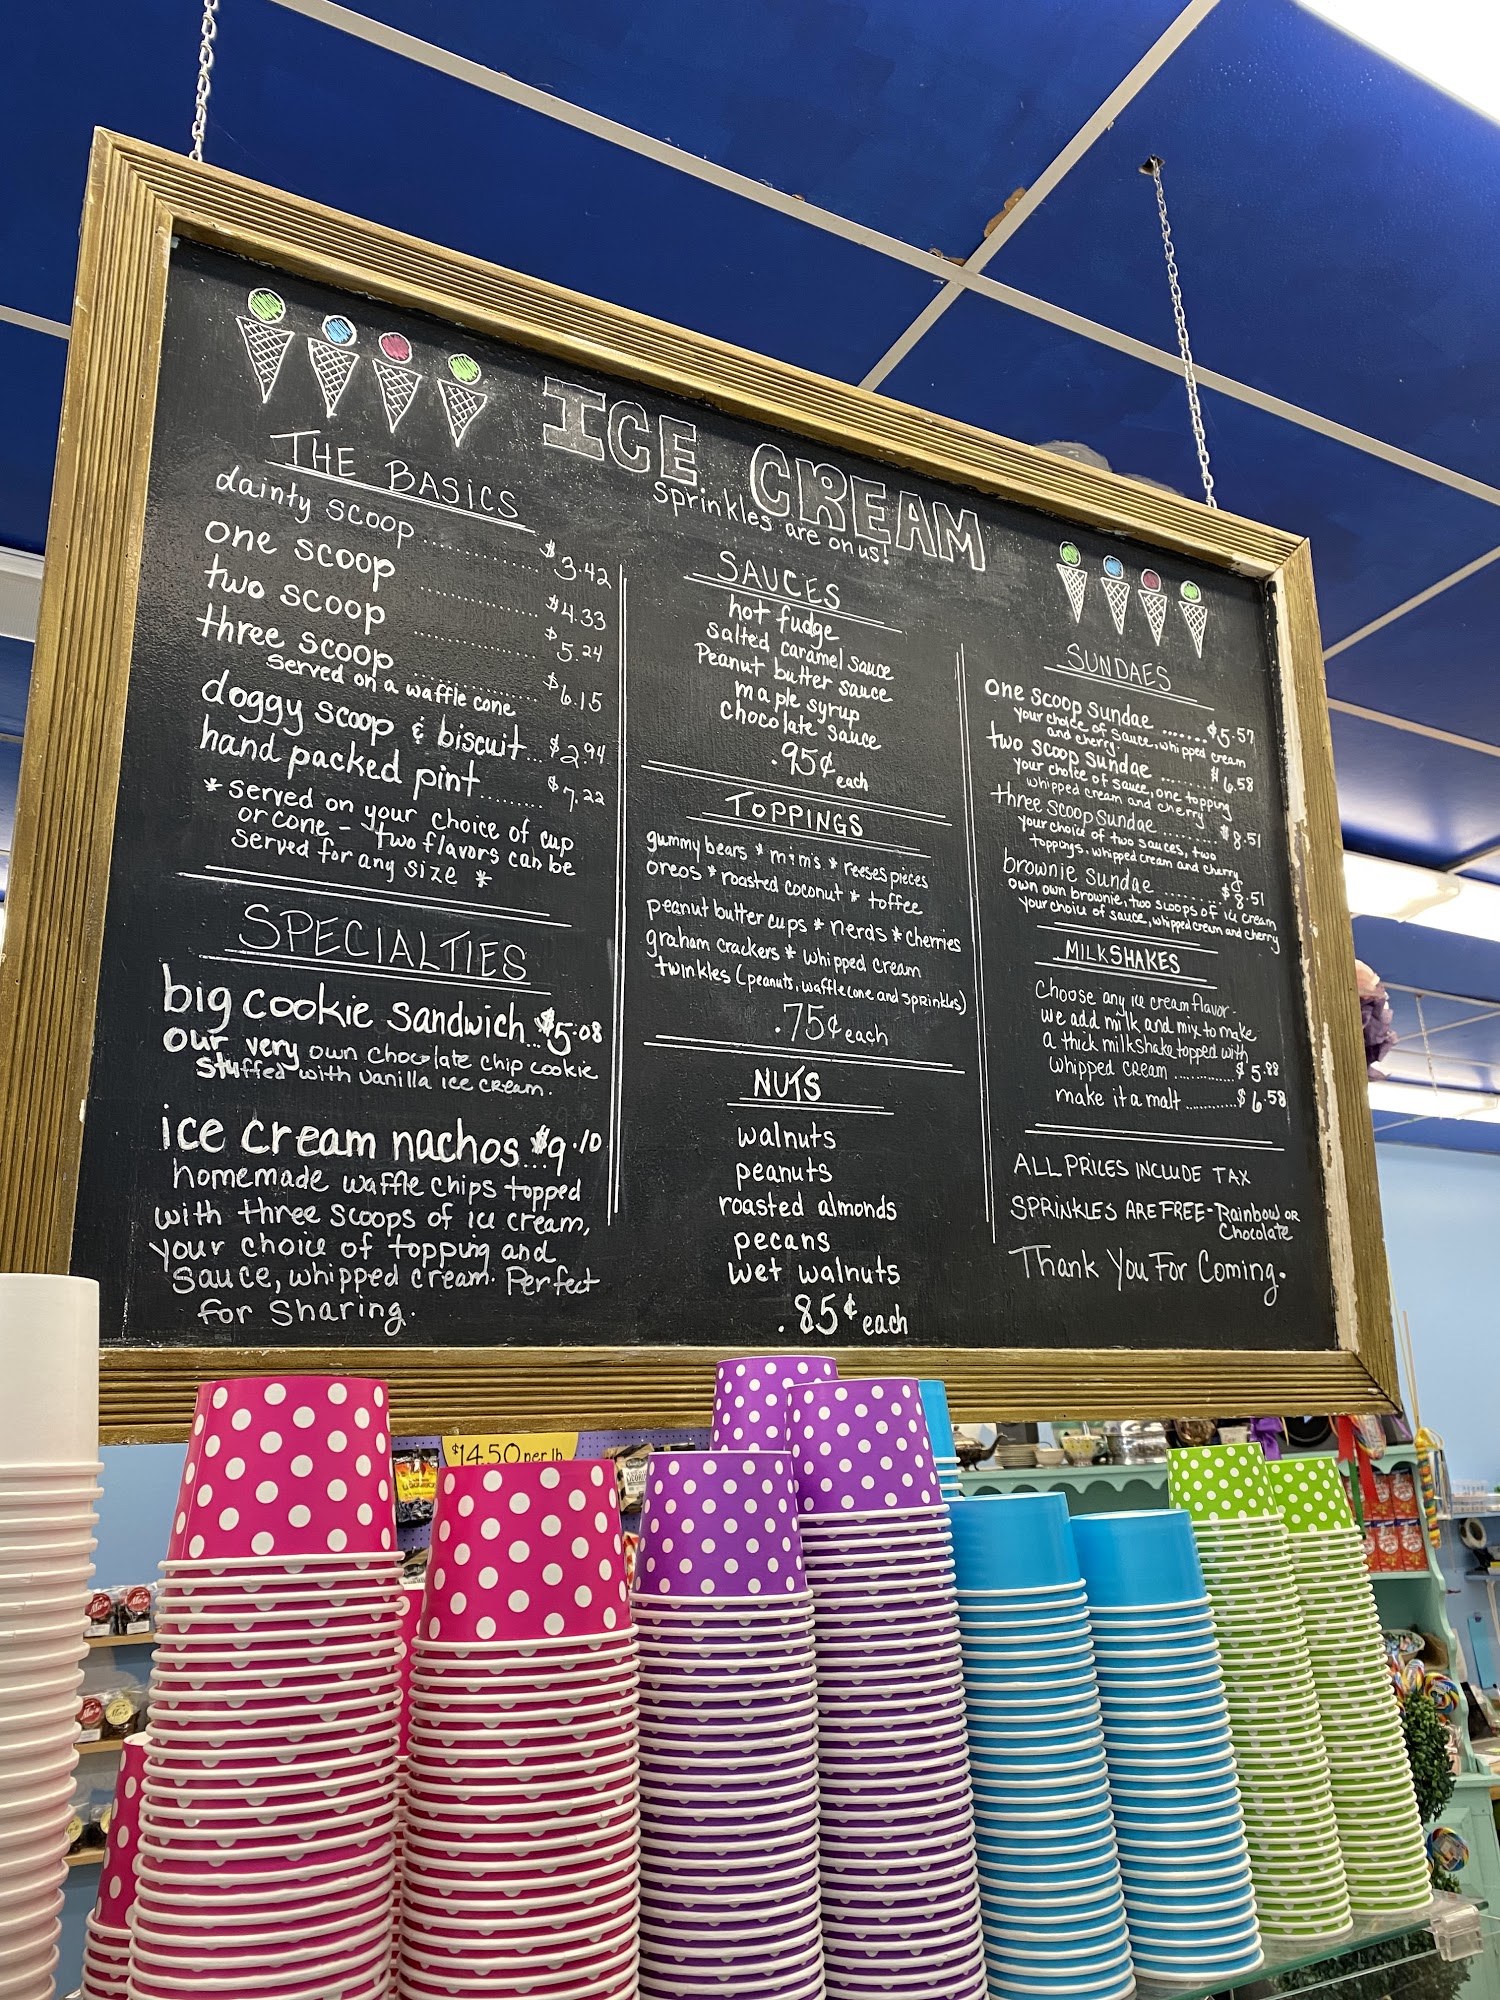 ICE CREAM
sprinkles are on us!
THE BASICS
dainty scoop .......... $3.42
one scoop .......... $4.33
two scoop .......... $5.24
three scoop .......... $6.15
served on a waffle cone
doggy scoop & biscuit... $2.94
hand packed pint........ $7.22
* served on your choice of cup
or cone - two flavors can be
served for any size *
SPECIALTIES
big cookie sandwich...$5.08
our very own chocolate chip cookie
stuffed with vanilla ice cream.
ice cream nachos...$9.10
homemade waffle chips topped
with three scoops of ice cream,
your choice of topping and
sauce, whipped cream. Perfect
for Sharing.
SAUCES
hot fudge
salted caramel sauce
Peanut butter sauce
maple syrup
chocolate sauce
.95¢ each
TOPPINGS
gummy bears * m&m's * reeses pieces
oreos * roasted coconut * toffee
peanut butter cups * nerds * cherries
graham crackers * whipped cream
twinkles (peanuts, waffle cone and sprinkles)
.75¢ each
NUTS
walnuts
peanuts
roasted almonds
pecans
wet walnuts
.85¢ each
SUNDAES
one scoop sundae ....... $5.57
your choice of sauce, whipped cream
and cherry.
two scoop sundae ....... $6.58
your choice of sauce, one topping
whipped cream and cherry
three scoop sundae ....... $8.51
your choice of two sauces, two
toppings, whipped cream and cherry
brownie sundae ....... $8.51
own own brownie, two scoops of ice cream
your choice of sauce, whipped cream and cherry
MILKSHAKES
Choose any ice cream flavor -
we add milk and mix to make
a thick milkshake topped with
whipped cream ............. $5.88
make it a malt ............ $6.58
ALL PRICES INCLUDE TAX
SPRINKLES ARE FREE - Rainbow or
Chocolate
Thank You For Coming.
$14.50 per lb.